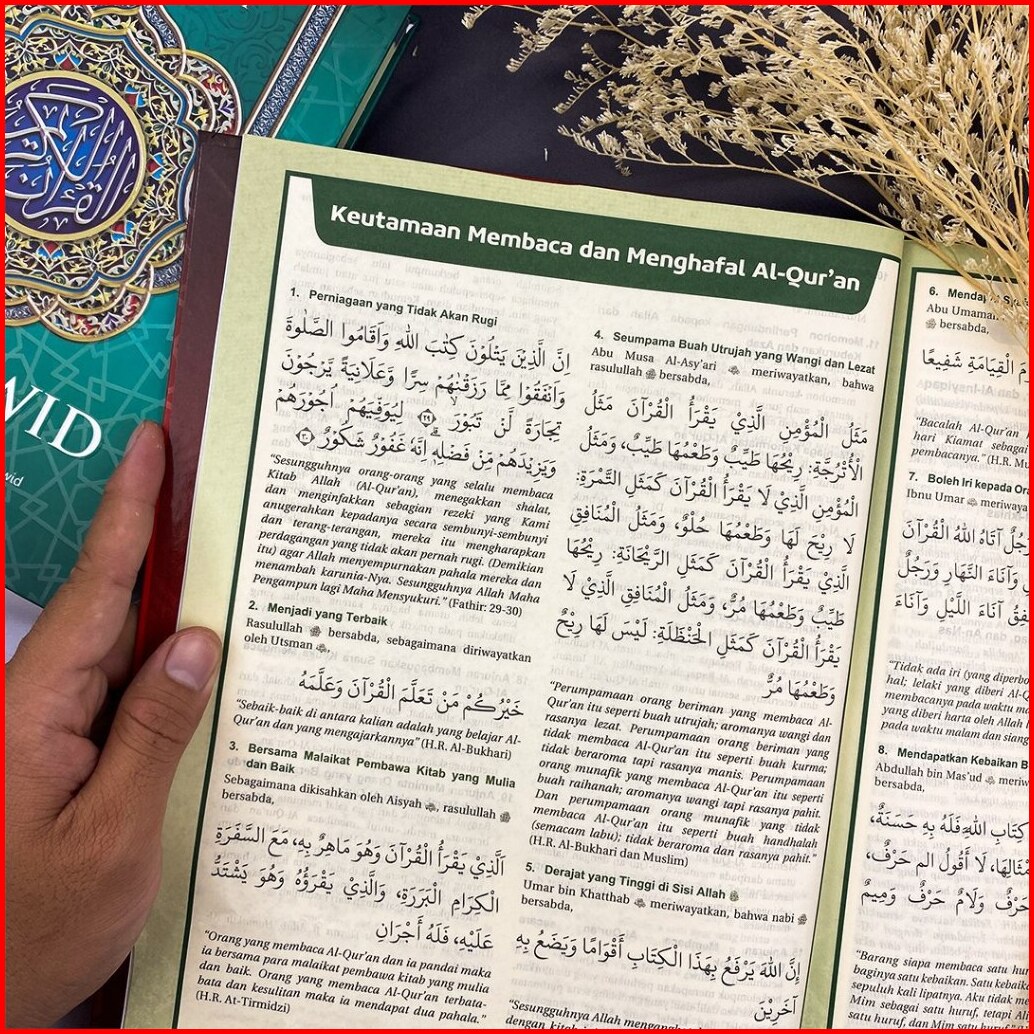 القرآن الكريم
WID
wid
Keutamaan Membaca dan Menghafal Al-Qur'an
1. Perniagaan yang Tidak Akan Rugi
اِنَّ الَّذِيْنَ يَتْلُوْنَ كِتٰبَ اللّٰهِ وَاَقَامُوا الصَّلٰوةَ
وَاَنْفَقُوْا مِمَّا رَزَقْنٰهُمْ سِرًّا وَّعَلَانِيَةً يَّرْجُوْنَ
تِجَارَةً لَّنْ تَبُوْرَ ۙ ﴿٢٩﴾ لِيُوَفِّيَهُمْ اُجُوْرَهُمْ
وَيَزِيْدَهُمْ مِّنْ فَضْلِهٖۗ اِنَّهٗ غَفُوْرٌ شَكُوْرٌ ﴿٣٠﴾
"Sesungguhnya orang-orang yang selalu membaca
Kitab Allah (Al-Qur'an), menegakkan shalat,
dan menginfakkan sebagian rezeki yang Kami
anugerahkan kepadanya secara sembunyi-sembunyi
dan terang-terangan, mereka itu mengharapkan
perdagangan yang tidak akan pernah rugi. (Demikian
itu) agar Allah menyempurnakan pahala mereka dan
menambah karunia-Nya. Sesungguhnya Allah Maha
Pengampun lagi Maha Mensyukuri." (Fathir: 29-30)
2. Menjadi yang Terbaik
Rasulullah ﷺ bersabda, sebagaimana diriwayatkan
oleh Utsman
خَيْرُكُمْ مَنْ تَعَلَّمَ الْقُرْآنَ وَعَلَّمَهُ
"Sebaik-baik di antara kalian adalah yang belajar Al-
Qur'an dan yang mengajarkannya" (H.R. Al-Bukhari)
3. Bersama Malaikat Pembawa Kitab yang Mulia
dan Baik
Sebagaimana dikisahkan oleh Aisyah , rasulullah ﷺ
bersabda,
الَّذِي يَقْرَأُ الْقُرْآنَ وَهُوَ مَاهِرٌ بِهِ، مَعَ السَّفَرَةِ
الْكِرَامِ الْبَرَرَةِ، وَالَّذِيْ يَقْرَؤُهُ وَهُوَ يَشْتَدُّ
عَلَيْهِ، فَلَهُ أَجْرَانِ
"Orang yang membaca Al-Qur'an dan ia pandai maka
ia bersama para malaikat pembawa kitab yang mulia
dan baik. Orang yang membaca Al-Qur'an terbata-
bata dan kesulitan maka ia mendapat dua pahala."
(H.R. At-Tirmidzi)
4. Seumpama Buah Utrujah yang Wangi dan Lezat
Abu Musa Al-Asy'ari meriwayatkan, bahwa
rasulullah ﷺ bersabda,
مَثَلُ الْمُؤْمِنِ الَّذِيْ يَقْرَأُ الْقُرْآنَ مَثَلُ
الْأُتْرُجَّةِ: رِيْحُهَا طَيِّبٌ وَطَعْمُهَا طَيِّبٌ، وَمَثَلُ
الْمُؤْمِنِ الَّذِيْ لَا يَقْرَأُ الْقُرْآنَ كَمَثَلِ التَّمْرَةِ:
لَا رِيْحَ لَهَا وَطَعْمُهَا حُلْوٌ، وَمَثَلُ الْمُنَافِقِ
الَّذِيْ يَقْرَأُ الْقُرْآنَ كَمَثَلِ الرَّيْحَانَةِ: رِيْحُهَا
طَيِّبٌ وَطَعْمُهَا مُرٌّ، وَمَثَلُ الْمُنَافِقِ الَّذِيْ لَا
يَقْرَأُ الْقُرْآنَ كَمَثَلِ الْحَنْظَلَةِ: لَيْسَ لَهَا رِيْحٌ
وَطَعْمُهَا مُرٌّ
"Perumpamaan orang beriman yang membaca Al-
Qur'an itu seperti buah utrujah; aromanya wangi dan
rasanya lezat. Perumpamaan orang beriman yang
tidak membaca Al-Qur'an itu seperti buah kurma;
tidak beraroma tapi rasanya manis. Perumpamaan
orang munafik yang membaca Al-Qur'an itu seperti
buah raihanah; aromanya wangi tapi rasanya pahit.
Dan perumpamaan orang munafik yang tidak
membaca Al-Qur'an itu seperti buah handhalah
(semacam labu); tidak beraroma dan rasanya pahit."
(H.R. Al-Bukhari dan Muslim)
5. Derajat yang Tinggi di Sisi Allah
Umar bin Khatthab meriwayatkan, bahwa nabi ﷺ
bersabda,
إِنَّ اللّٰهَ يَرْفَعُ بِهَذَا الْكِتَابِ أَقْوَامًا وَيَضَعُ بِهِ
آخَرِيْنَ
"Sesungguhnya Allah
dengan kitab
6. Mendapa
Abu Umamah
ﷺ bersabda,
مَ الْقِيَامَةِ شَفِيعًا
"Bacalah Al-Qur'an
hari Kiamat sebagai
pembacanya." (H.R. Mu
7. Boleh Iri kepada Or
Ibnu Umar meriwaya
جُلٌ آتَاهُ اللهُ الْقُرْآنَ
وَآنَاءَ النَّهَارِ وَرَجُلٌ
فِقُ آنَاءَ اللَّيْلِ وَآنَاءَ
"Tidak ada iri (yang diperbo
hal; lelaki yang diberi Al-Q
membacanya pada waktu ma
yang diberi harta oleh Allah
pada waktu malam dan siang
8. Mendapatkan Kebaikan B
Abdullah bin Mas'ud meriw
bersabda,
كِتَابِ اللهِ فَلَهُ بِهِ حَسَنَةٌ،
مْثَالِهَا، لَا أَقُولُ الم حَرْفٌ،
حَرْفٌ وَلَامٌ حَرْفٌ وَمِيمٌ
"Barang siapa membaca satu hur
baginya satu kebaikan. Satu kebaika
sepuluh kali lipatnya. Aku tidak me
Mim sebagai satu huruf, tetapi Al
satu huruf, dan Mim satu huruf."